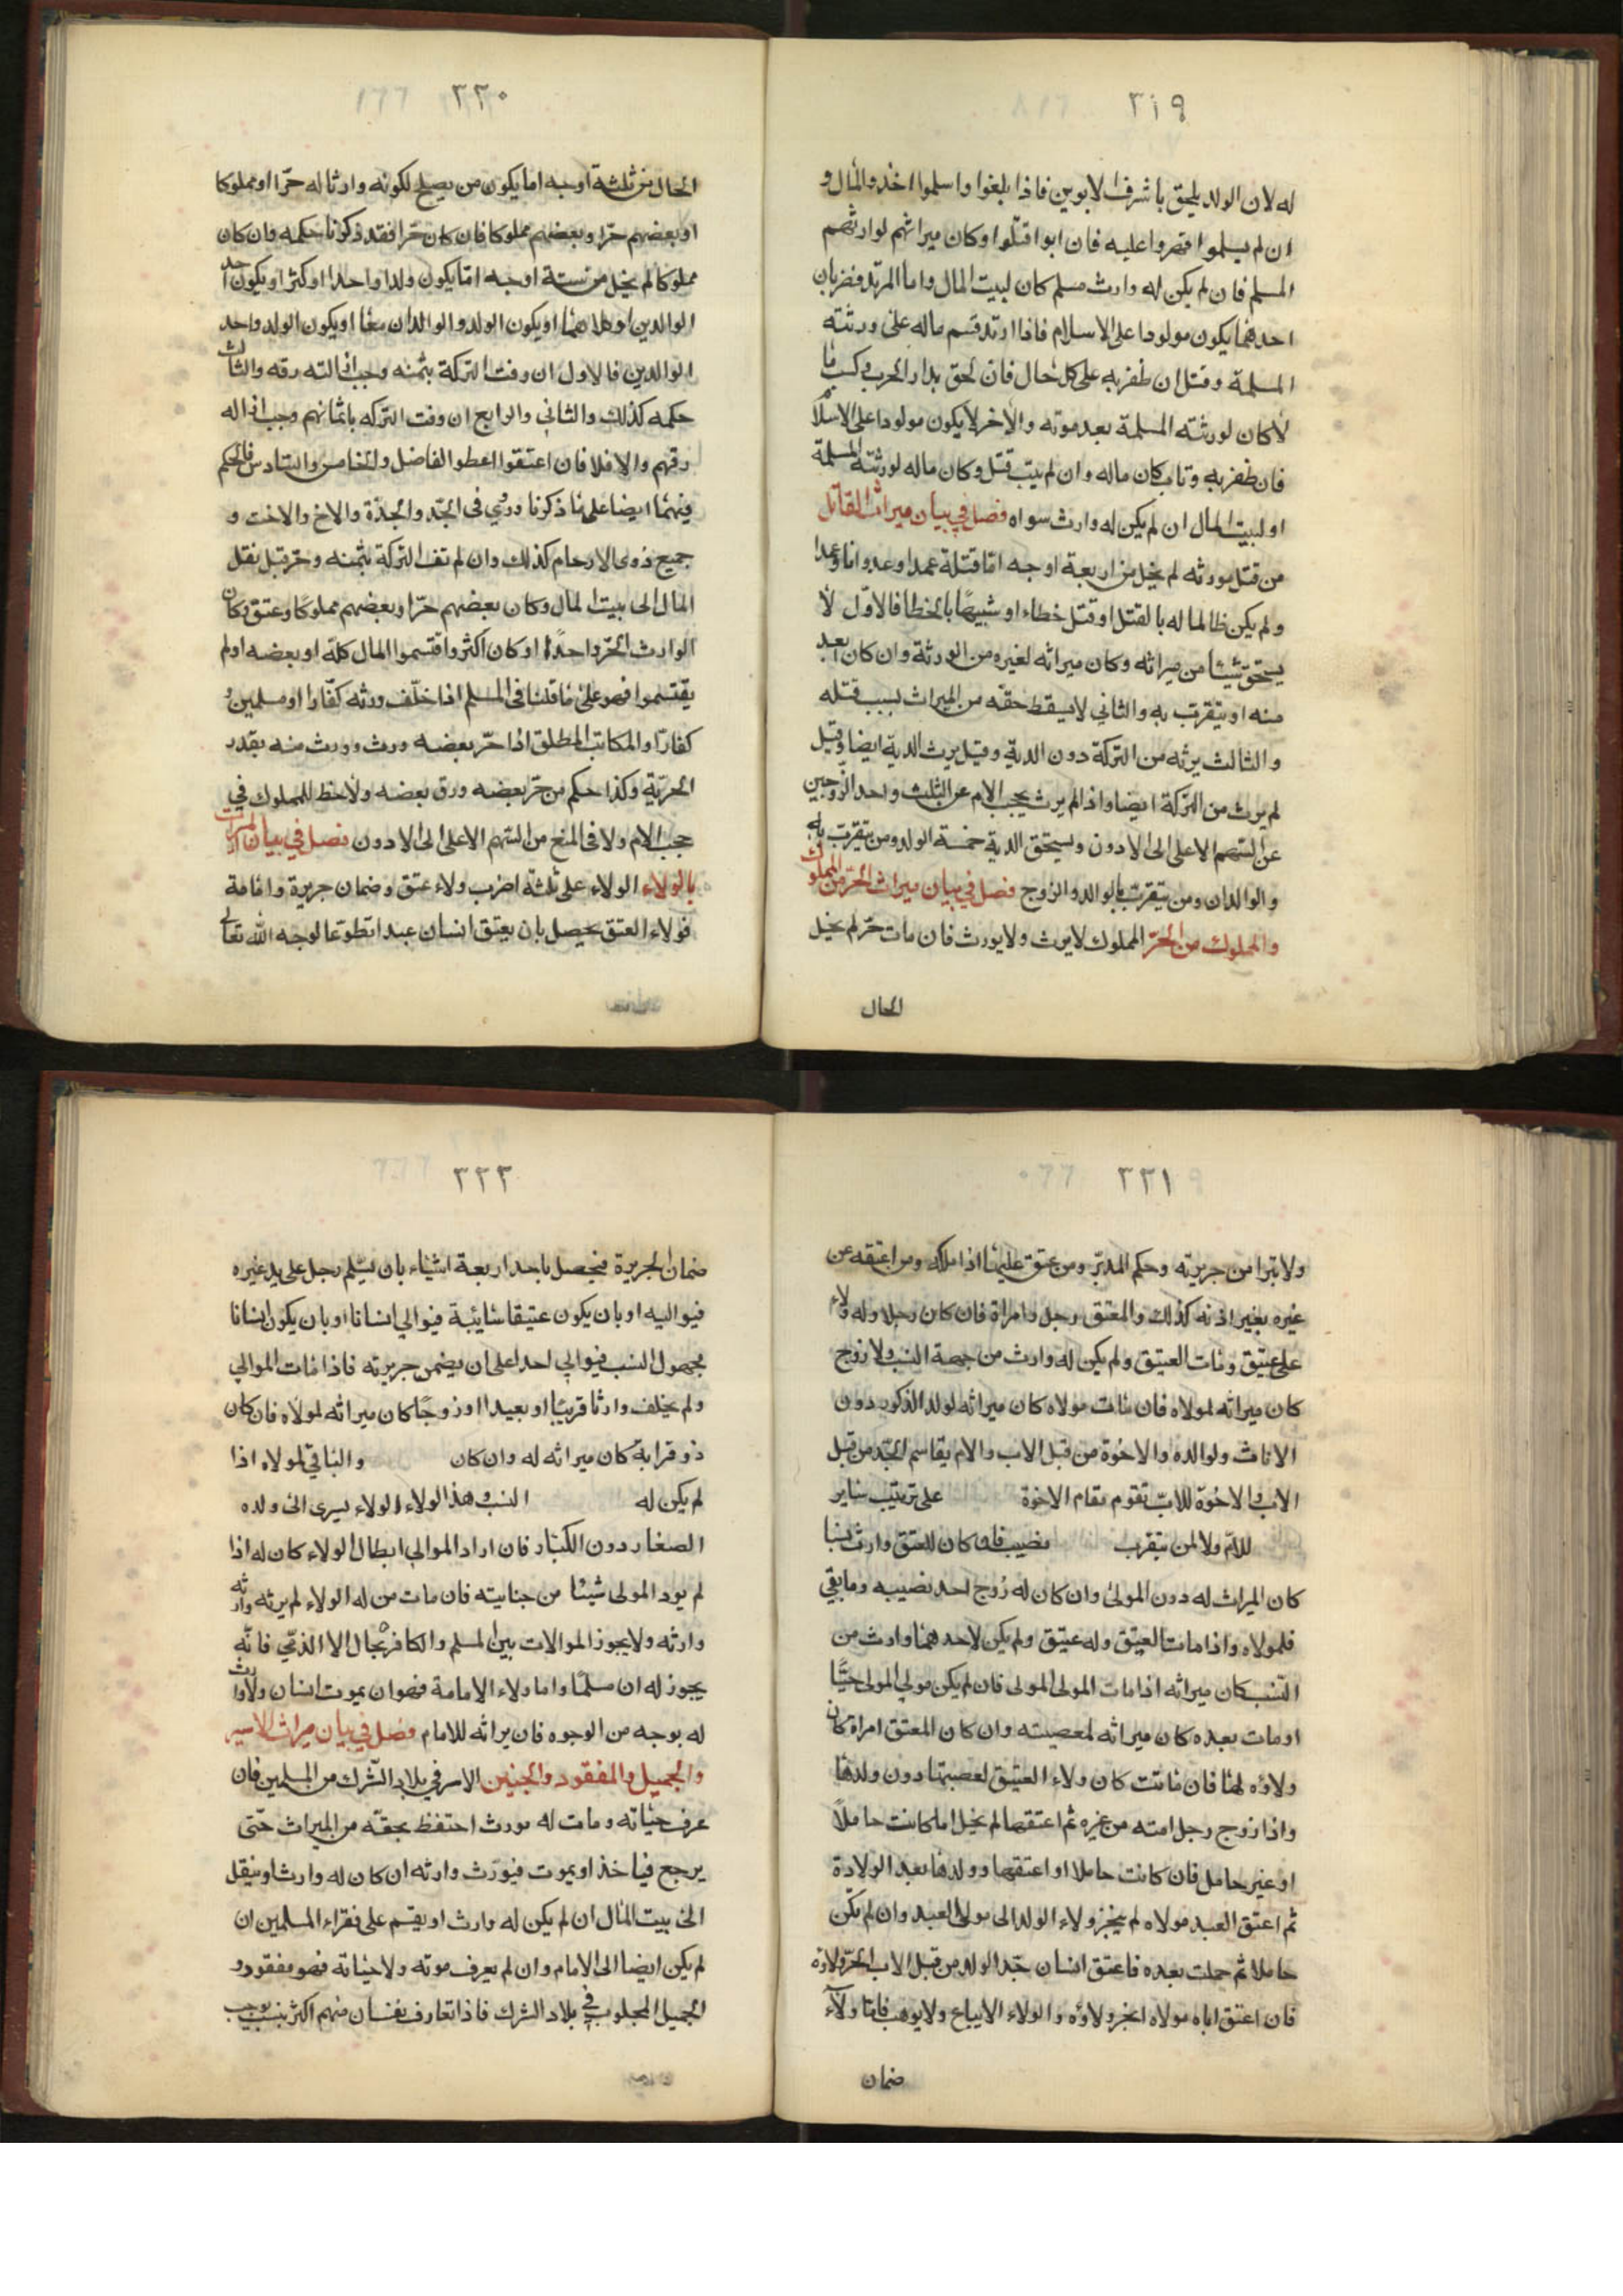 ٣١٩
له لان الولد يلحق باشرف الابوين فاذا بلغوا واسلموا اخذوا المال و
ان لم يسلموا قهروا عليه فان ابوا قتلوا وكان ميراثهم لوارثهم
المسلم فان لم يكن له وارث مسلم كان لبيت المال واما المرتد فضربان
احدهما يكون مولودا على الاسلام فاذا ارتد قسم ماله على ورثته
المسلمة وقتل ان ظفر به على كل حال فان لحق بدار الحرب وكسب ما
لا كان لورثته المسلمة بعد موته والاخر لا يكون مولودا على الاسلام
فان ظفر به وتاب كان ماله وان لم يتب قتل وكان ماله لورثته المسلمة
او لبيت المال ان لم يكن له وارث سواه فصل في بيان ميراث القاتل
من قتل مورثه لم يخل من اربعة اوجه اما قتلة عمدا وعدوانا وعمدا
ولم يكن ظالما له بالقتل او قتل خطاء او شبيها بالخطا فالاول لا
يستحق شيئا من ميراثه وكان ميراثه لغيره من الورثة وان كان ابعد
منه او يتقرب به والثاني لا يسقط حقه من الميراث بسبب قتله
والثالث يرثه من التركة دون الدية وقيل يرث الدية ايضا وقيل
لم يرث من التركة ايضا واذا لم يرث يحجب الام عن الثلث واحد الزوجين
عن السهم الاعلى الى الادون ويستحق الدية خمسة الولد ومن يتقرب به
والوالدان ومن يتقرب بالوالد والزوج فصل في بيان ميراث الحر من المملوك
والمملوك من الحر المملوك لا يرث ولا يورث فان مات حر لم يخل
الحال
٣٢٠
الحال من ثلثة اوجه اما يكون من يصلح لكونه وارثا له حرا او مملوكا
او بعضهم حرا وبعضهم مملوكا فان كان حرا فقد ذكرنا حكمه وان كان
مملوكا لم يخل من ستة اوجه اما يكون ولدا واحدا او اكثر او يكون احد
الوالدين او كلاهما او يكون الولد والوالدان معا او يكون الولد واحد
الوالدين فالاول ان وفت التركة بثمنه وجب ازالته رقه والثالث
حكمه كذلك والثاني والرابع ان وفت التركه باثمانهم وجب ازاله
رقهم والا فلا فان اعتقوا اعطوا الفاضل والخامس والسادس فالحكم
فيهما ايضا على ما ذكرنا وروي في الجد والجدة والاخ والاخت و
جميع ذوى الارحام كذلك وان لم تف التركة بثمنه وحر قبل نقل
المال الى بيت المال وكان بعضهم حرا وبعضهم مملوكا وعتق وكان
الوارث الحر واحدا او كان اكثر واقتسموا المال كله او بعضه او لم
يقتسموا فهو على ما قلنا فى المسلم اذا خلف ورثه كفارا او مسلمين و
كفارا والمكاتب المطلق اذا حر بعضه ورث وورث منه بقدر
الحرية وكذا حكم من حر بعضه ورق بعضه ولا حظ للمملوك في
حجب الام ولا فى المنع من السهم الاعلى الى الادون فصل في بيان الميراث
بالولاء الولاء على ثلثة اضرب ولاء عتق وضمان جريرة وامامة
فولاء العتق يحصل بان يعتق انسان عبدا تطوعا لوجه الله تعالى
٣٢١
ولا تبرا من جريرته وحكم المدبر ومن عتق عليها اذا ملكه ومن اعتقه عن
غيره بغير اذنه كذلك والمعتق رجل وامراة فان كان رجلا وله ولاء
على عتيق ومات العتيق ولم يكن له وارث من جهة النسب ولا زوج
كان ميراثه لمولاه فان مات مولاه كان ميراثه لولد الذكور دون
الاناث ولوالده والاخوة من قبل الاب والام يقاسم الجد من قبل
الاب والاخوة للاب تقوم مقام الاخوة على ترتيب ساير
للام ولا لمن يتقرب نصيب فان كان للعتق وارث نسبا
كان الميراث له دون المولى وان كان له زوج احد نصيبه وما بقي
فلمولاه واذا مات العتيق وله عتيق ولم يكن لاحدهما وارث من
النسب كان ميراثه اذا مات المولى لمولى فان لم يكن مولي المولى حيا
او مات بعده كان ميراثه لعصبته وان كان المعتق امراة كان
ولاؤه لها فان ماتت كان ولاء العتيق لعصبتها دون ولدها
واذا زوج رجل امته من غيره ثم اعتقها لم يخل اما كانت حاملا
او غير حامل فان كانت حاملا او اعتقها وولدها بعد الولادة
ثم اعتق العبد مولاه لم ينجز ولاء الولد الى مولى العبد وان لم يكن
حاملا ثم حملت بعده فاعتق انسان جد الولد من قبل الاب انجر ولاؤه
فان اعتق اباه مولاه انجر ولاؤه والولاء لا يباع ولا يوهب فاما ولاء
ضمان
٣٢٢
ضمان الجريرة فيحصل باحد اربعة اشياء بان يسلم رجل على يد غيره
فيواليه او بان يكون عتيقا سائبة فيوالي انسانا او بان يكون انسانا
مجهول النسب فيوالي احدا على ان يضمن جريرته فاذا مات الموالي
ولم يخلف وارثا قريبا او بعيدا او زوجا كان ميراثه لمولاه فان كان
ذو قرابة كان ميراثه له وان كان والباقي لمولاه اذا
لم يكن له النسب وهذا الولاء الولاء يسرى الى ولده
الصغار دون الكبار فان اراد الموالي ابطال الولاء كان له اذا
لم يود المولى شيئا من جنايته فان مات من له الولاء لم يرثه وارثه
وارثه ولا يجوز الموالات بين المسلم والكافر بحال الا الذمي فانه
يجوز له ان مسلما واما ولاء الامامة فهو ان يموت انسان ولا وارث
له بوجه من الوجوه فان يراثه للامام فصل في بيان ميراث الاسير
والجميل والمفقود والجنين الاسر في بلاد الشرك من المسلمين فان
عرف حياته ومات له مورث احتفظ بحقه من الميراث حتى
يرجع فياخذ او يموت فيورث وارثه ان كان له وارثا وينقل
الى بيت المال ان لم يكن له وارث او يقسم على فقراء المسلمين ان
لم يكن ايضا الى الامام وان لم يعرف موته ولا حياته فهو مفقود و
الجميل المجلوب في بلاد الشرك فاذا تعارف نفسان منهم اكثر بنسب يوجب